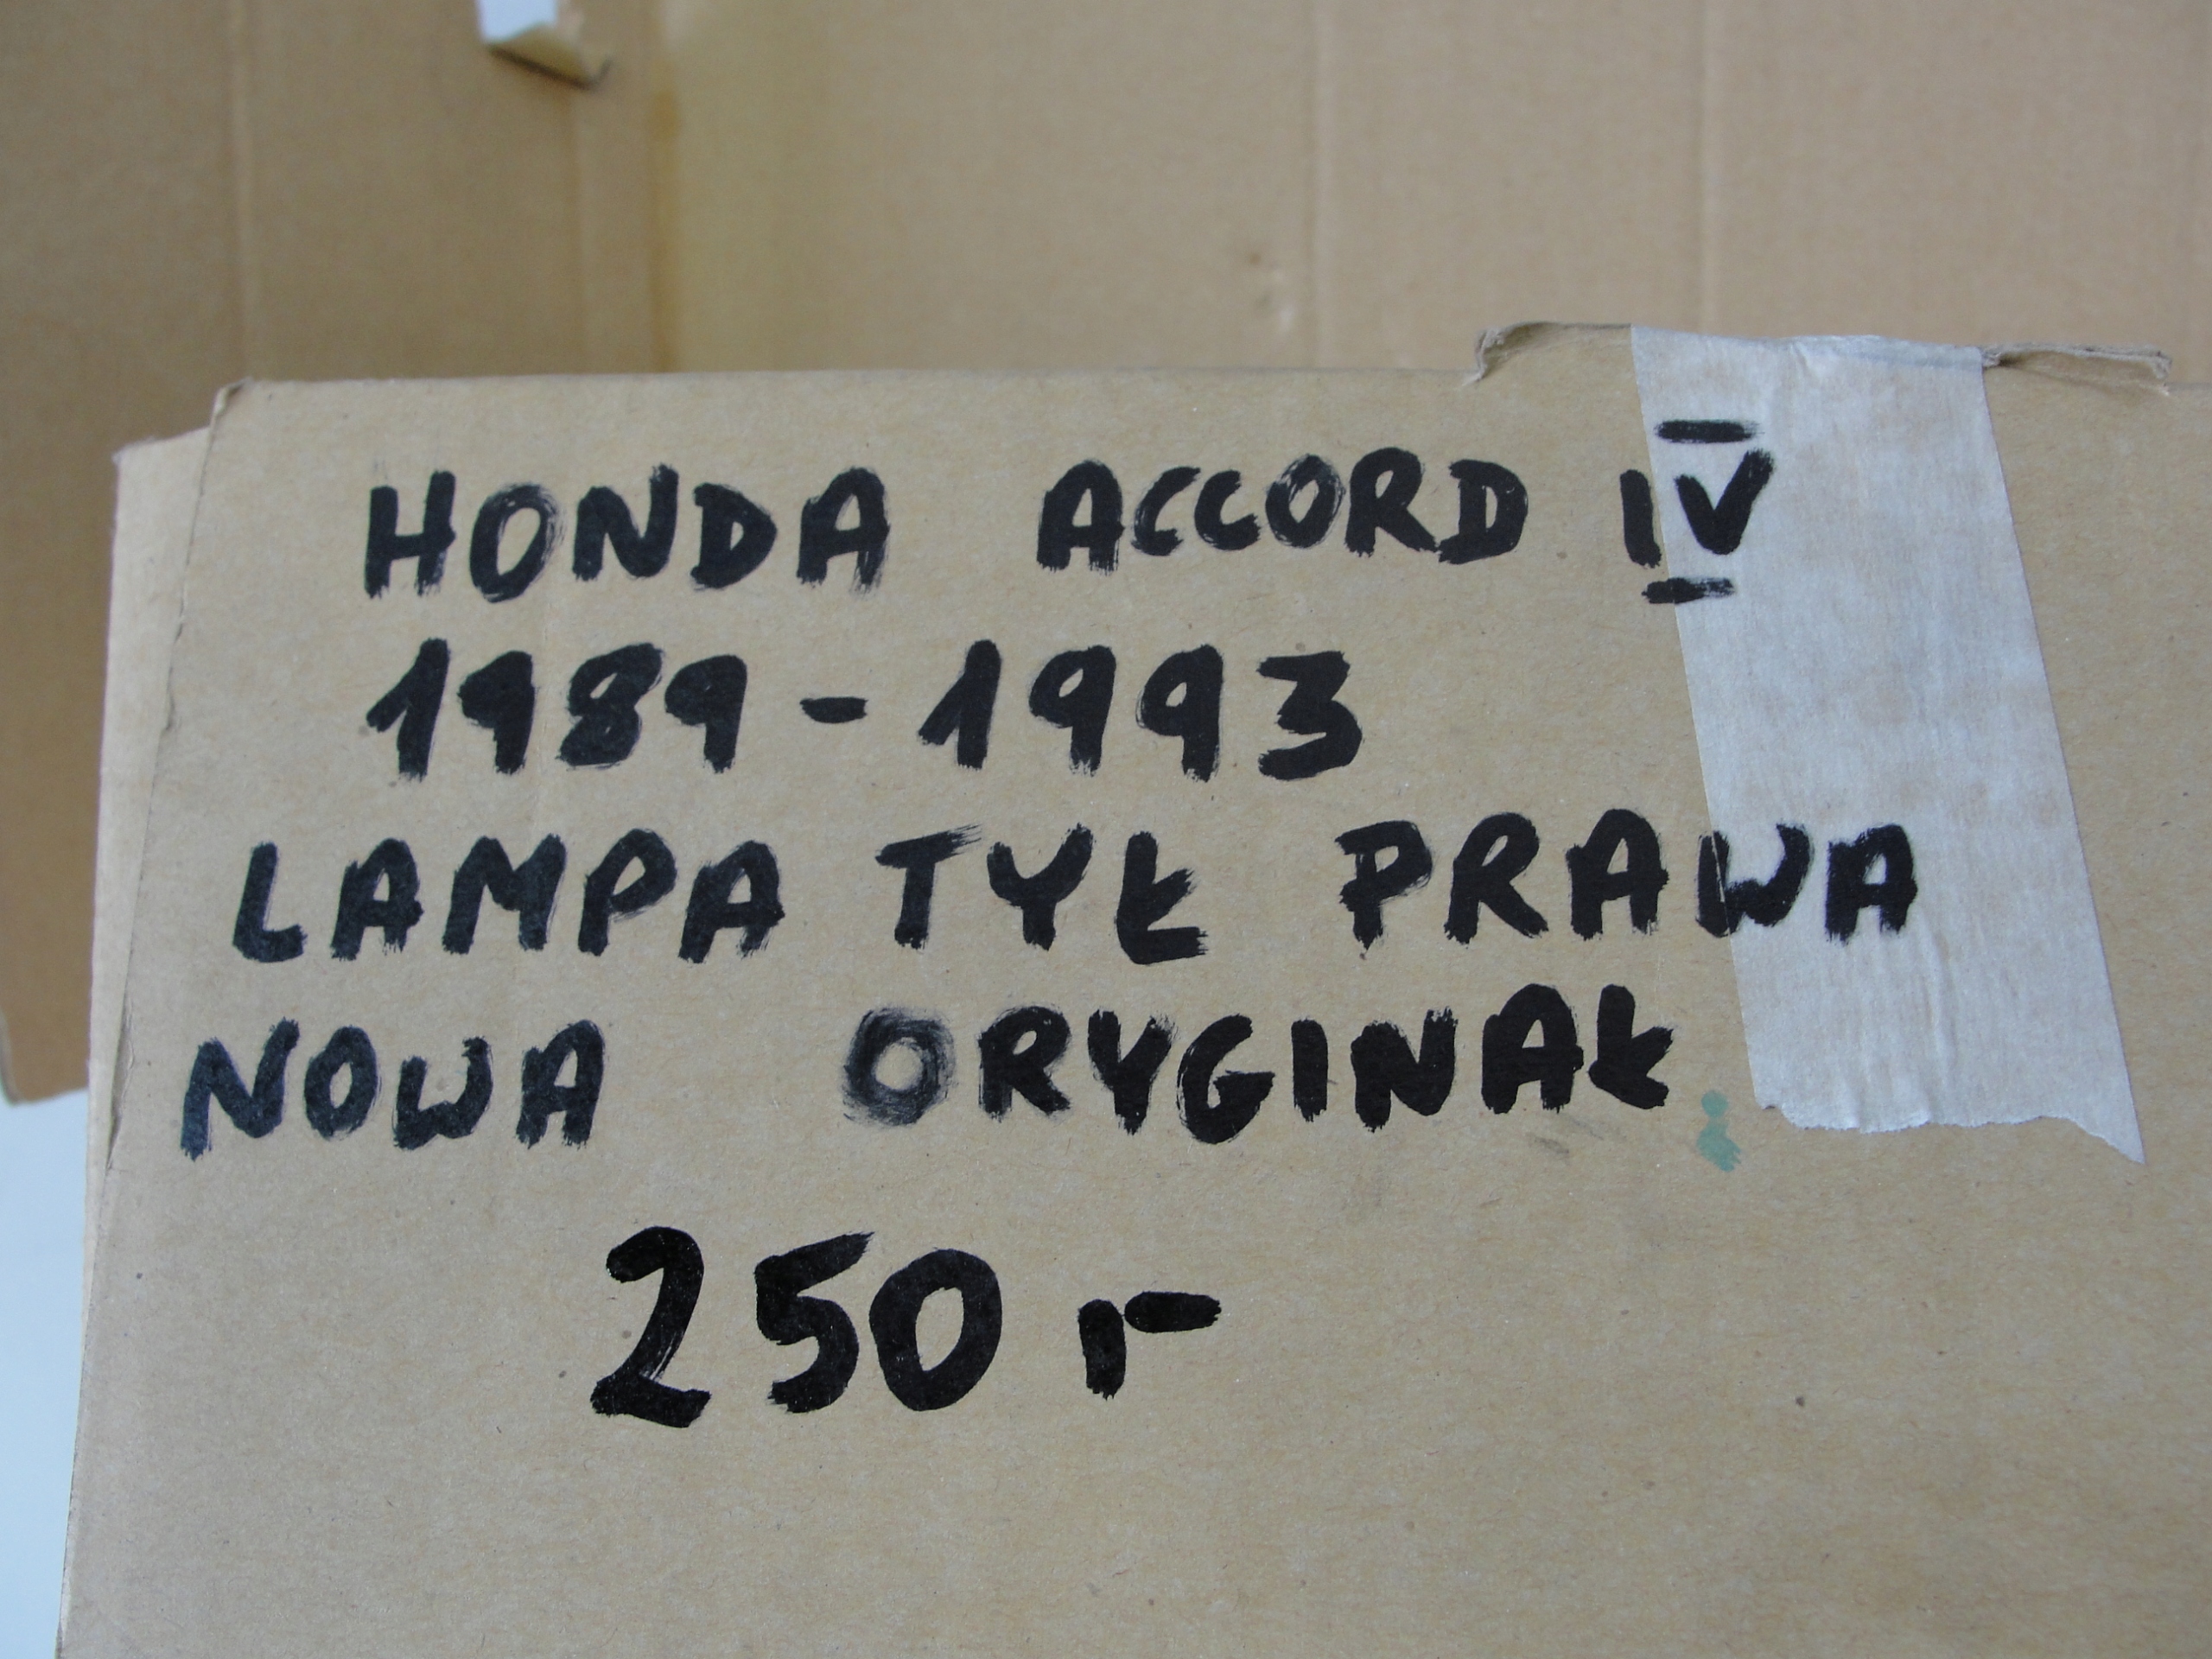 HONDA ACCORD IV
1989-1993
LAMPA TYŁ PRAWA
NOWA ORYGINAŁ
250 ,-